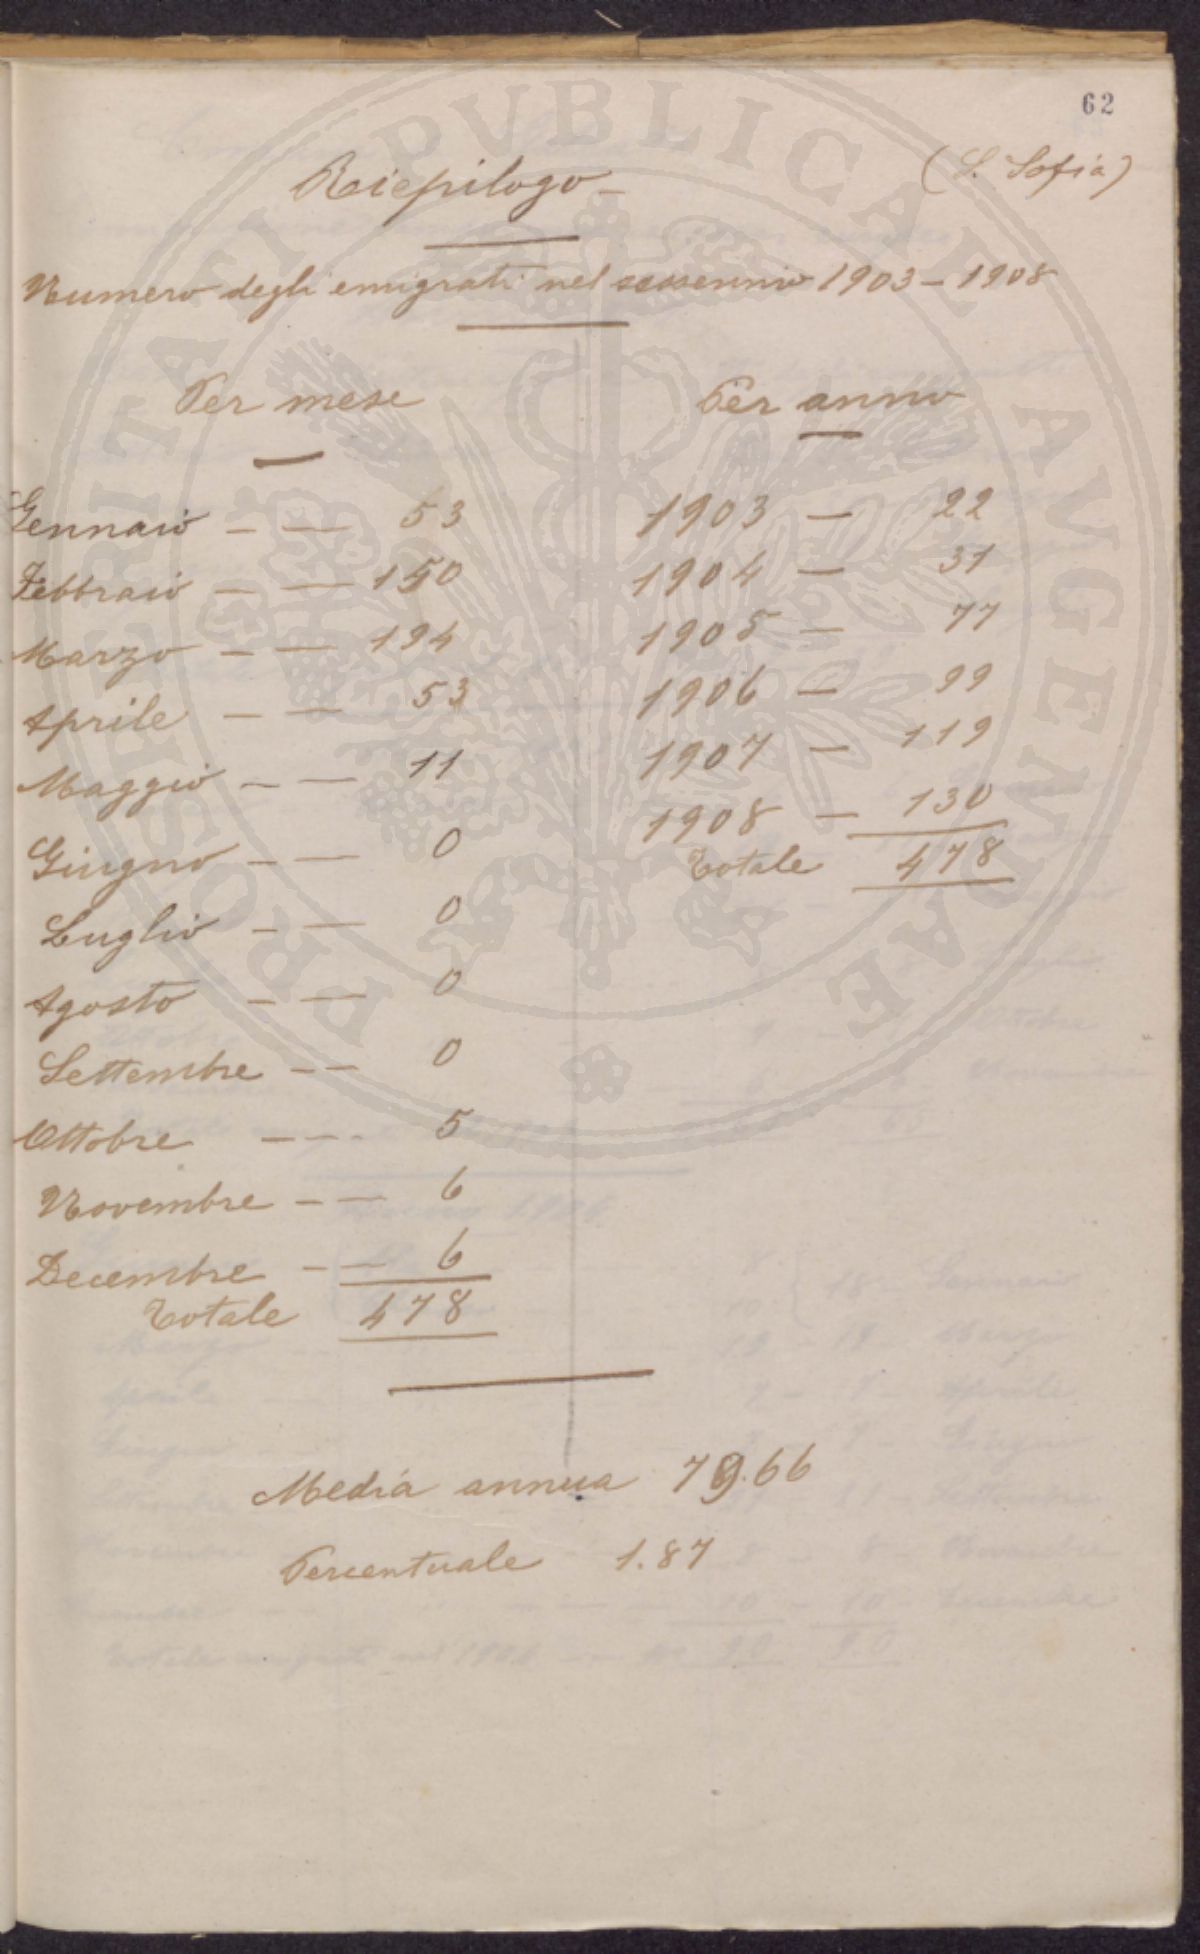 62
(S. Sofia)
Riepilogo
Numero degli emigrati nel sessennio 1903 - 1908
Per mese
Gennaio - - 53
Febbraio - - 150
Marzo - - 194
Aprile - - 53
Maggio - - 11
Giugno - - 0
Luglio - - 0
Agosto - - 0
Settembre - - 0
Ottobre - - 5
Novembre - - 6
Decembre - - 6
Totale 478
Per anno
1903 - 22
1904 - 31
1905 - 77
1906 - 99
1907 - 119
1908 - 130
Totale 478
Media annua 79.66
Percentuale 1.87
PROSPERITATI PVBLICAE AVGENDAE